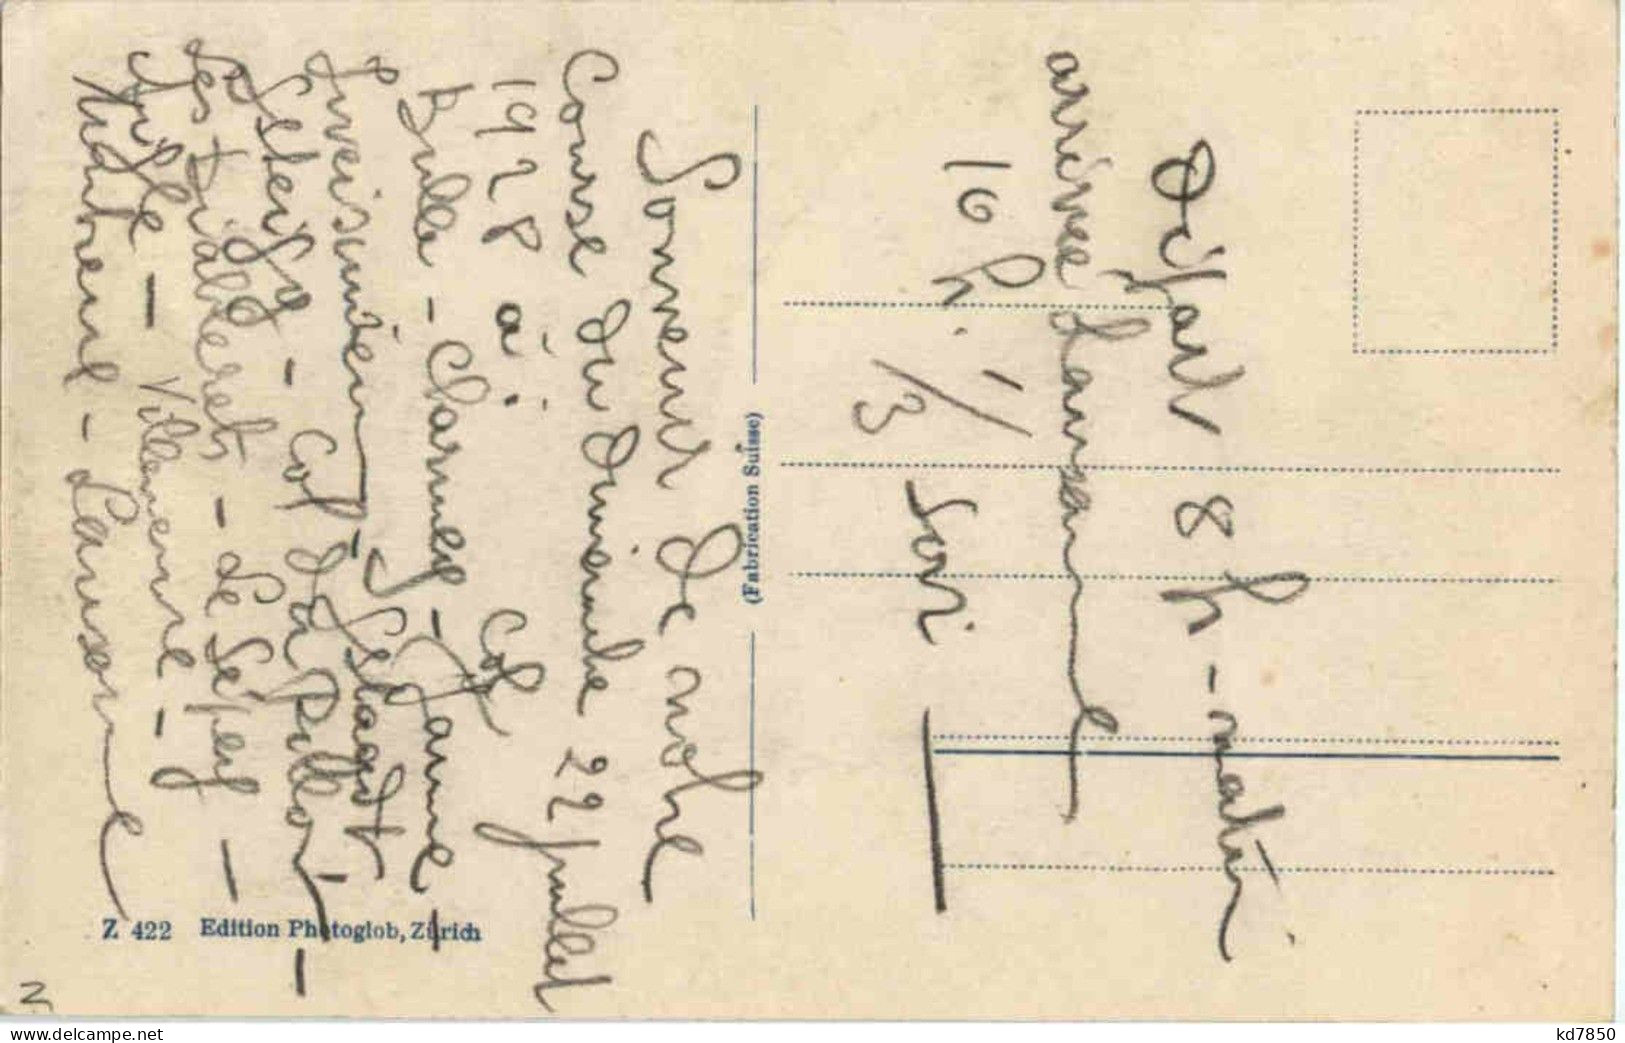 Souvenir de notre
Course du Dimanche 22 juillet
1928 à : Col
Bulle - Charmey - Jaune -
Zweisimmen - Gstaadt -
Gsteig - Col du Pillon -
Les Diablerets - Le Sépey -
Aigle - Villeneuve -
Montreux - Lausanne
Départ 8 h - matin
arrivée Lausanne
10 h. 1/3 soir
(Fabrication Suisse)
Z 422 Edition Photoglob, Zürich
N
www.delcampe.net
kd7850